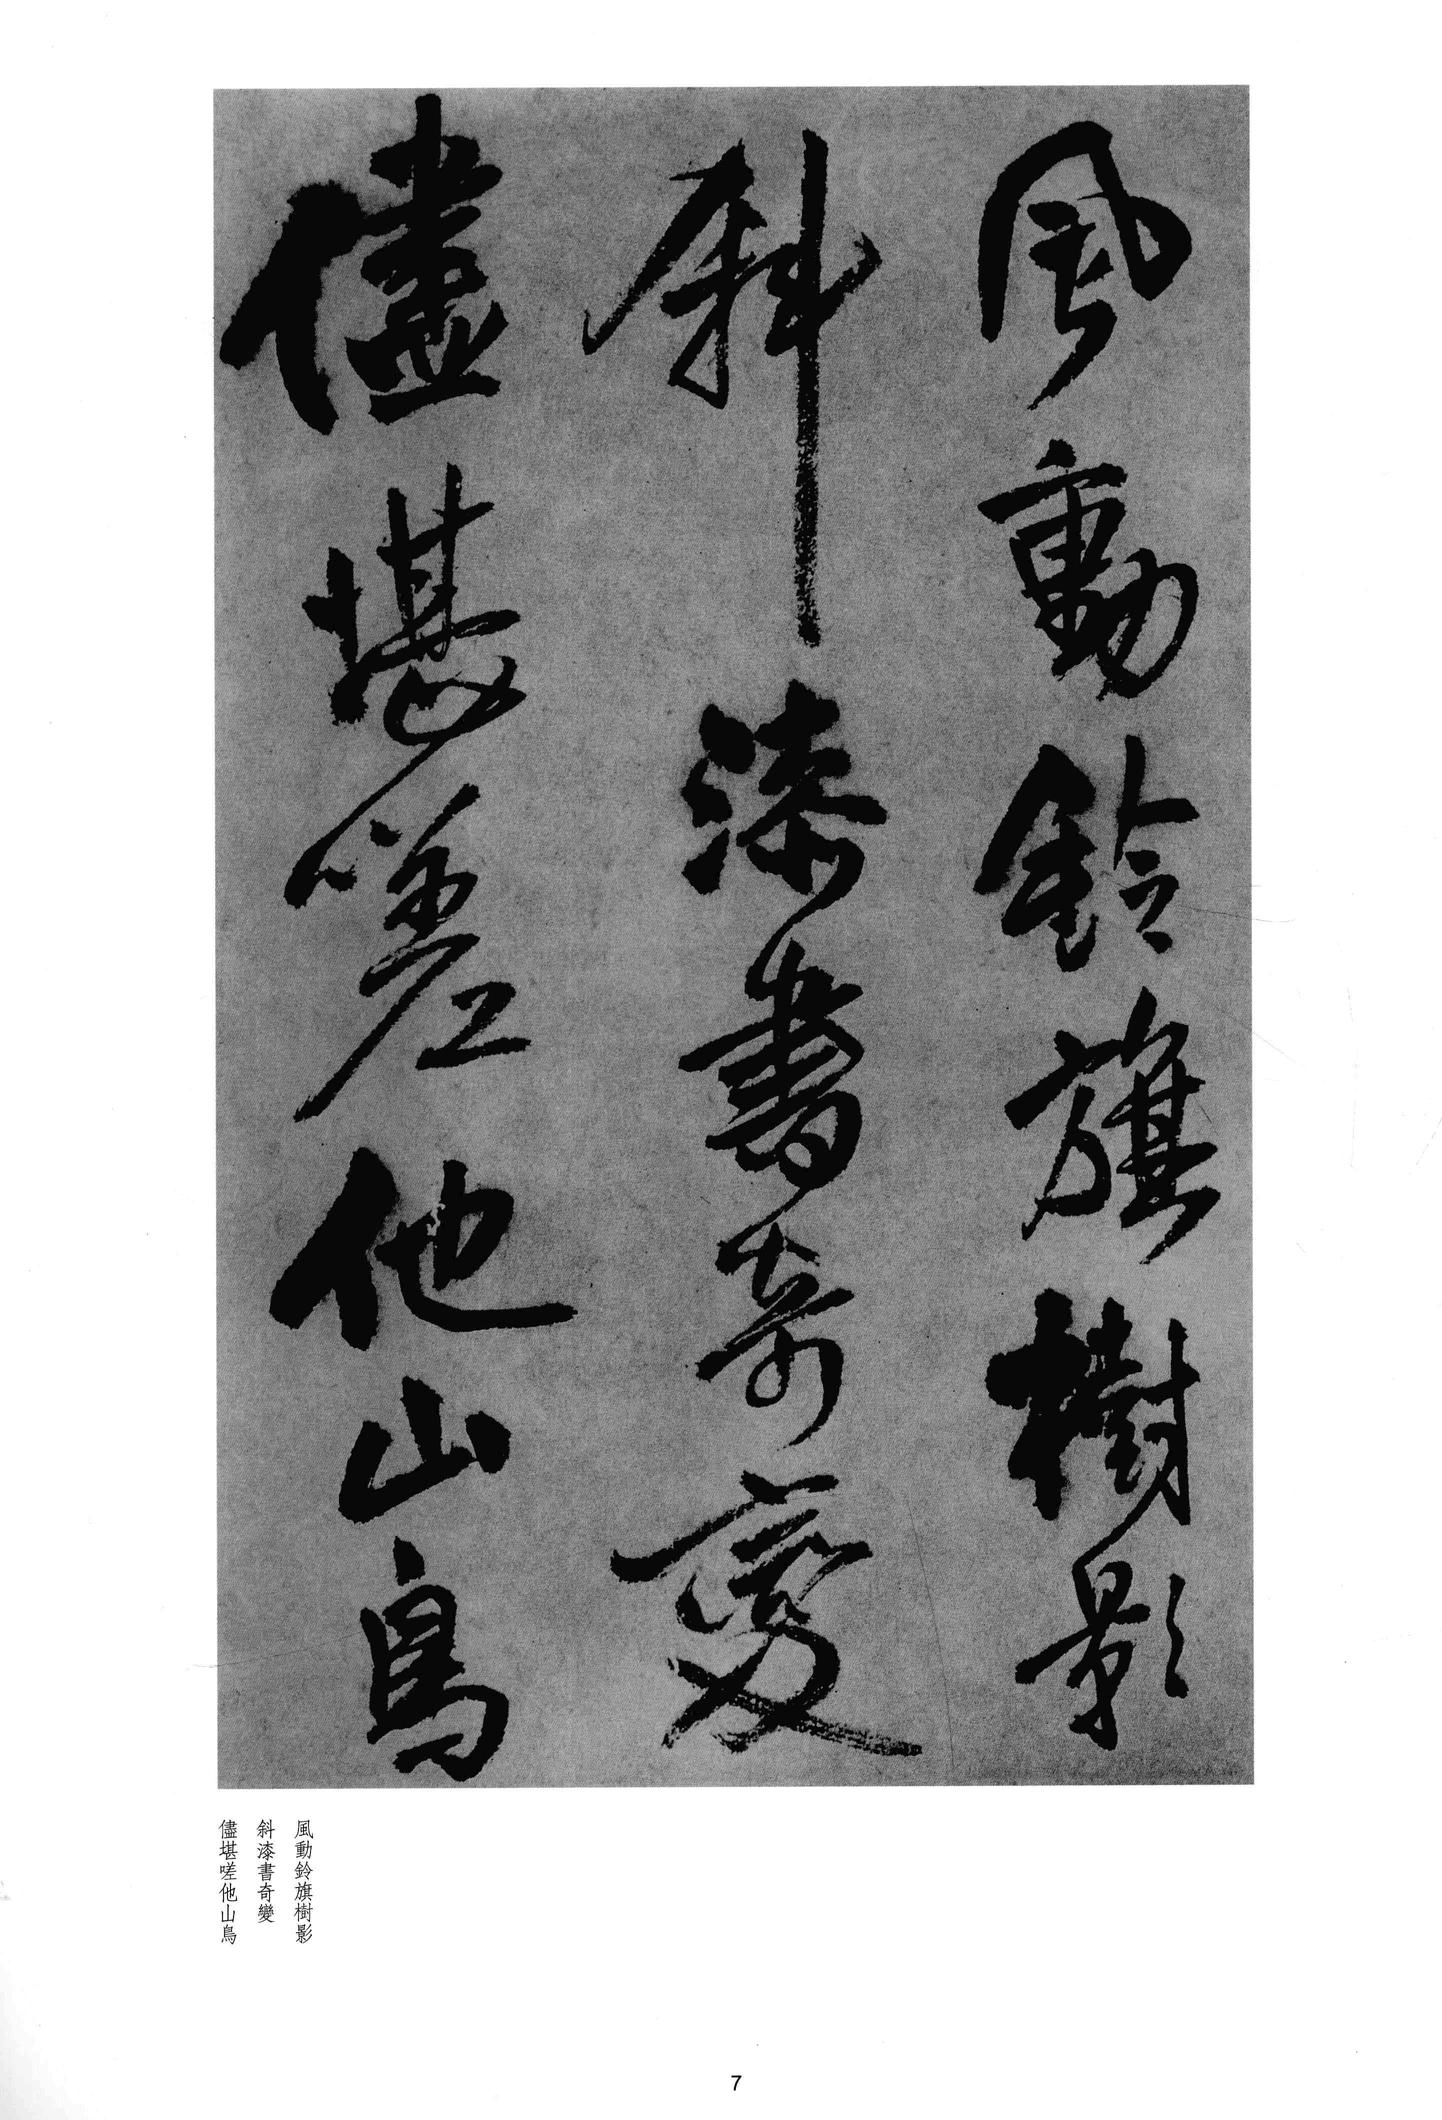 風動鈴旗樹影
斜漆書奇變
儘堪嗟他山鳥
風動鈴旗樹影
斜漆書奇變
儘堪嗟他山鳥
7